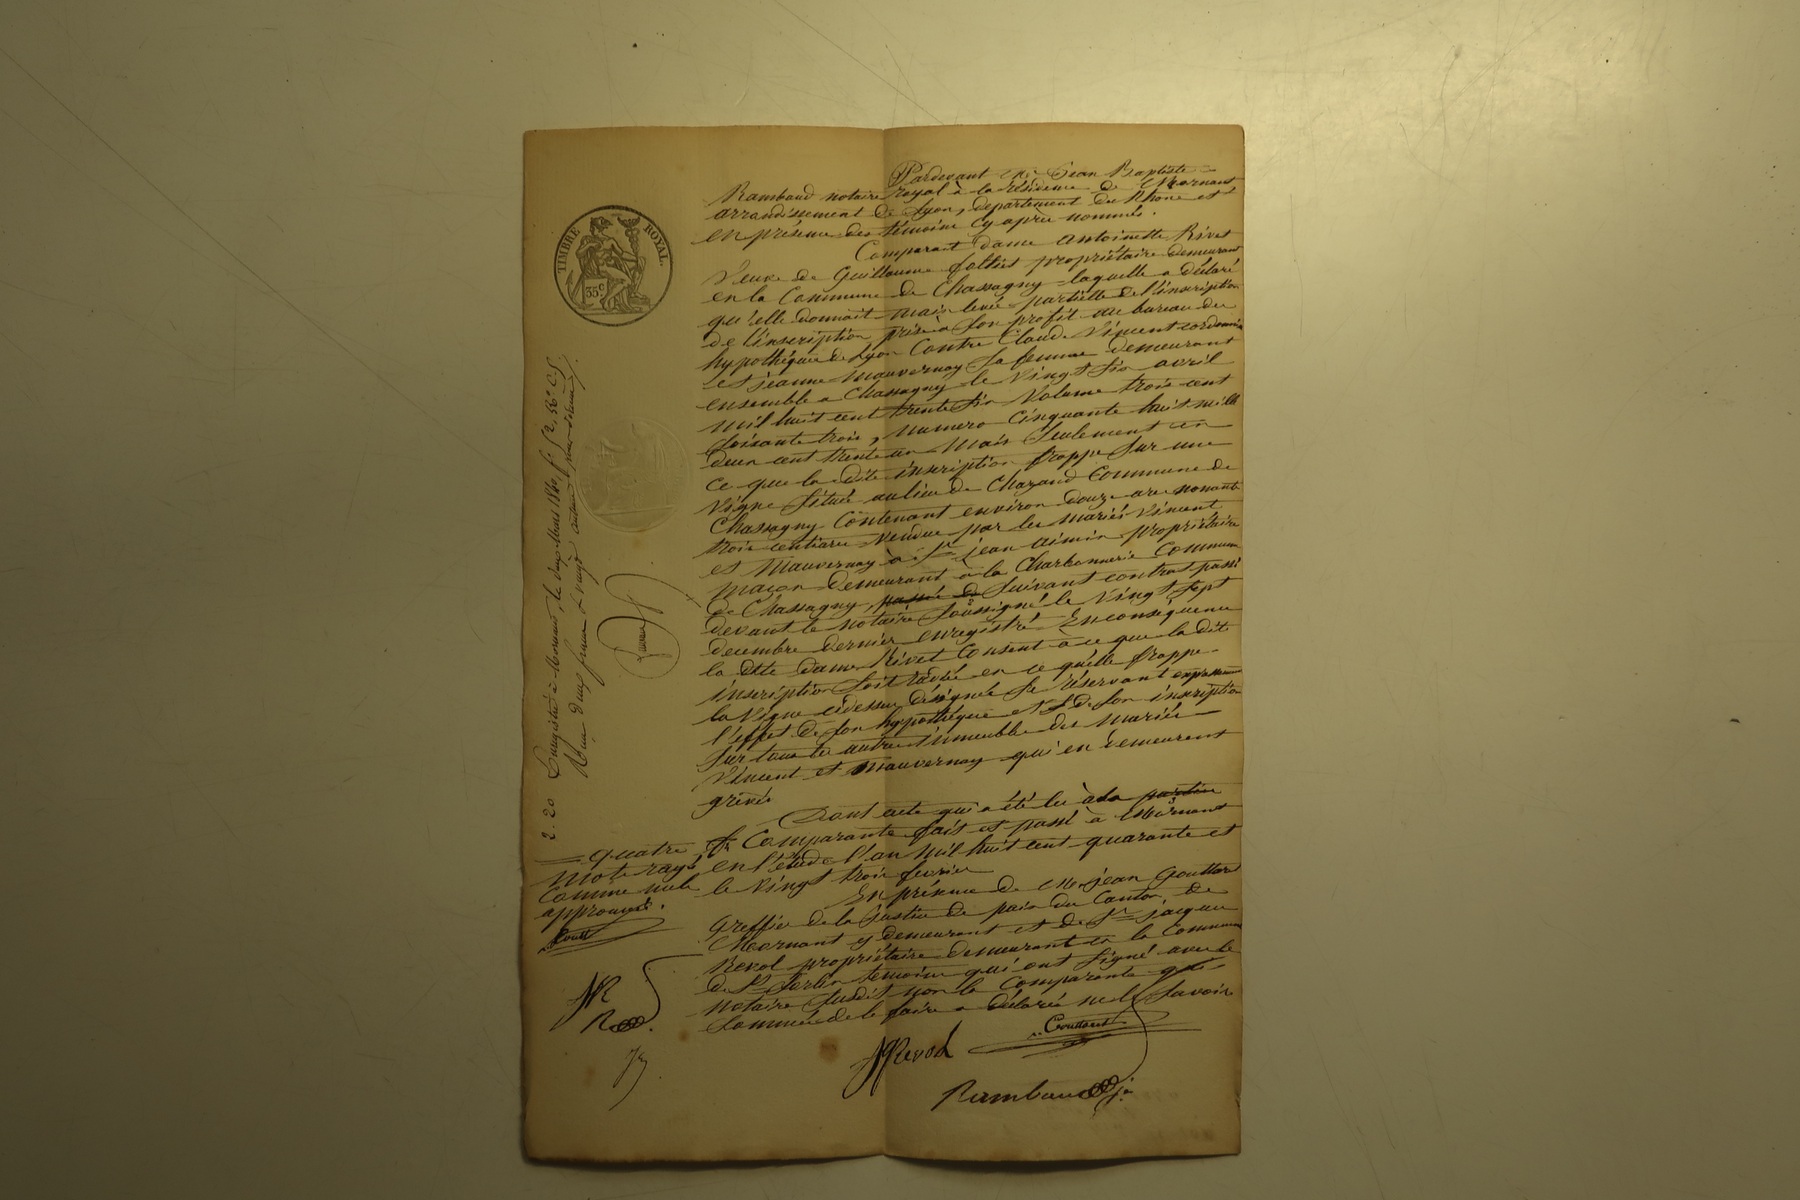 TIMBRE ROYAL.
35c
Pardevant Me Jean Baptiste
Rambaud notaire royal à la résidence de Mornant
arrondissement de Lyon, departement du Rhône et
en présence des témoins cy après nommés.
Comparait dame antoinette Rivet
Veuve de Guillaume propriétaire demeurant
en la Commune de Chassagny laquelle a déclaré
qu'elle donnait main levée partielle de l'inscription
de l'inscription prise à son profit au bureau des
hypothéques de Lyon Contre Claude Vincent cordonnier
et jeanne Mauvernay sa femme demeurant
ensemble a Chassagny le Vingt six avril
mil huit cent trente six Volume trois cent
soixante trois, numero Cinquante huit mille
deux cent trente un Mais Seulement en
ce que la dite inscription frappe sur une
Vigne située au lieu de Chazaud Commune de
Chassagny Contenant environ douze ares nonante
trois centiares vendue par les mariés Vincent
et Mauvernay à Sr jean aimin propriétaire
maçon demeurant à la Charbonnerie Commune
de Chassagny, passé de Suivant contrat passé
devant le notaire soussigné le Vingt sept
decembre dernier enregistré. En conséquence
la dite dame Rivet Consent à ce que la dite
inscription soit radiée en ce qu'elle frappe
la Vigne cidessus désignée se réservant expressement
l'effet de son hypothéque et de son inscription
sur tous les autres immeubles des mariés
Vincent et Mauvernay qui en demeurent
grevés
Dont acte qui a été lu à la partie
Comparante fait et passé à Mornant
en l'étude l'an mil huit cent quarante et
le Vingt trois fevrier
En présence de Me jean Gouttard
Greffier de la Justice de paix du Canton de
Mornant y demeurant et de Sr jacques
Revol propriétaire demeurant en la Commune
de St Sorlin temoins qui ont signé avec le
notaire Susdit non la Comparante qui
sommée de le faire a déclaré ne le Savoir
quatre
mots rayés
comme nuls
approuvés.
JR
JRevol
Gouttard
Rambaud
Enregistré à Mornant, le deux Mars 1840,
Reçu deux francs & vingt centimes pour décime
2.20